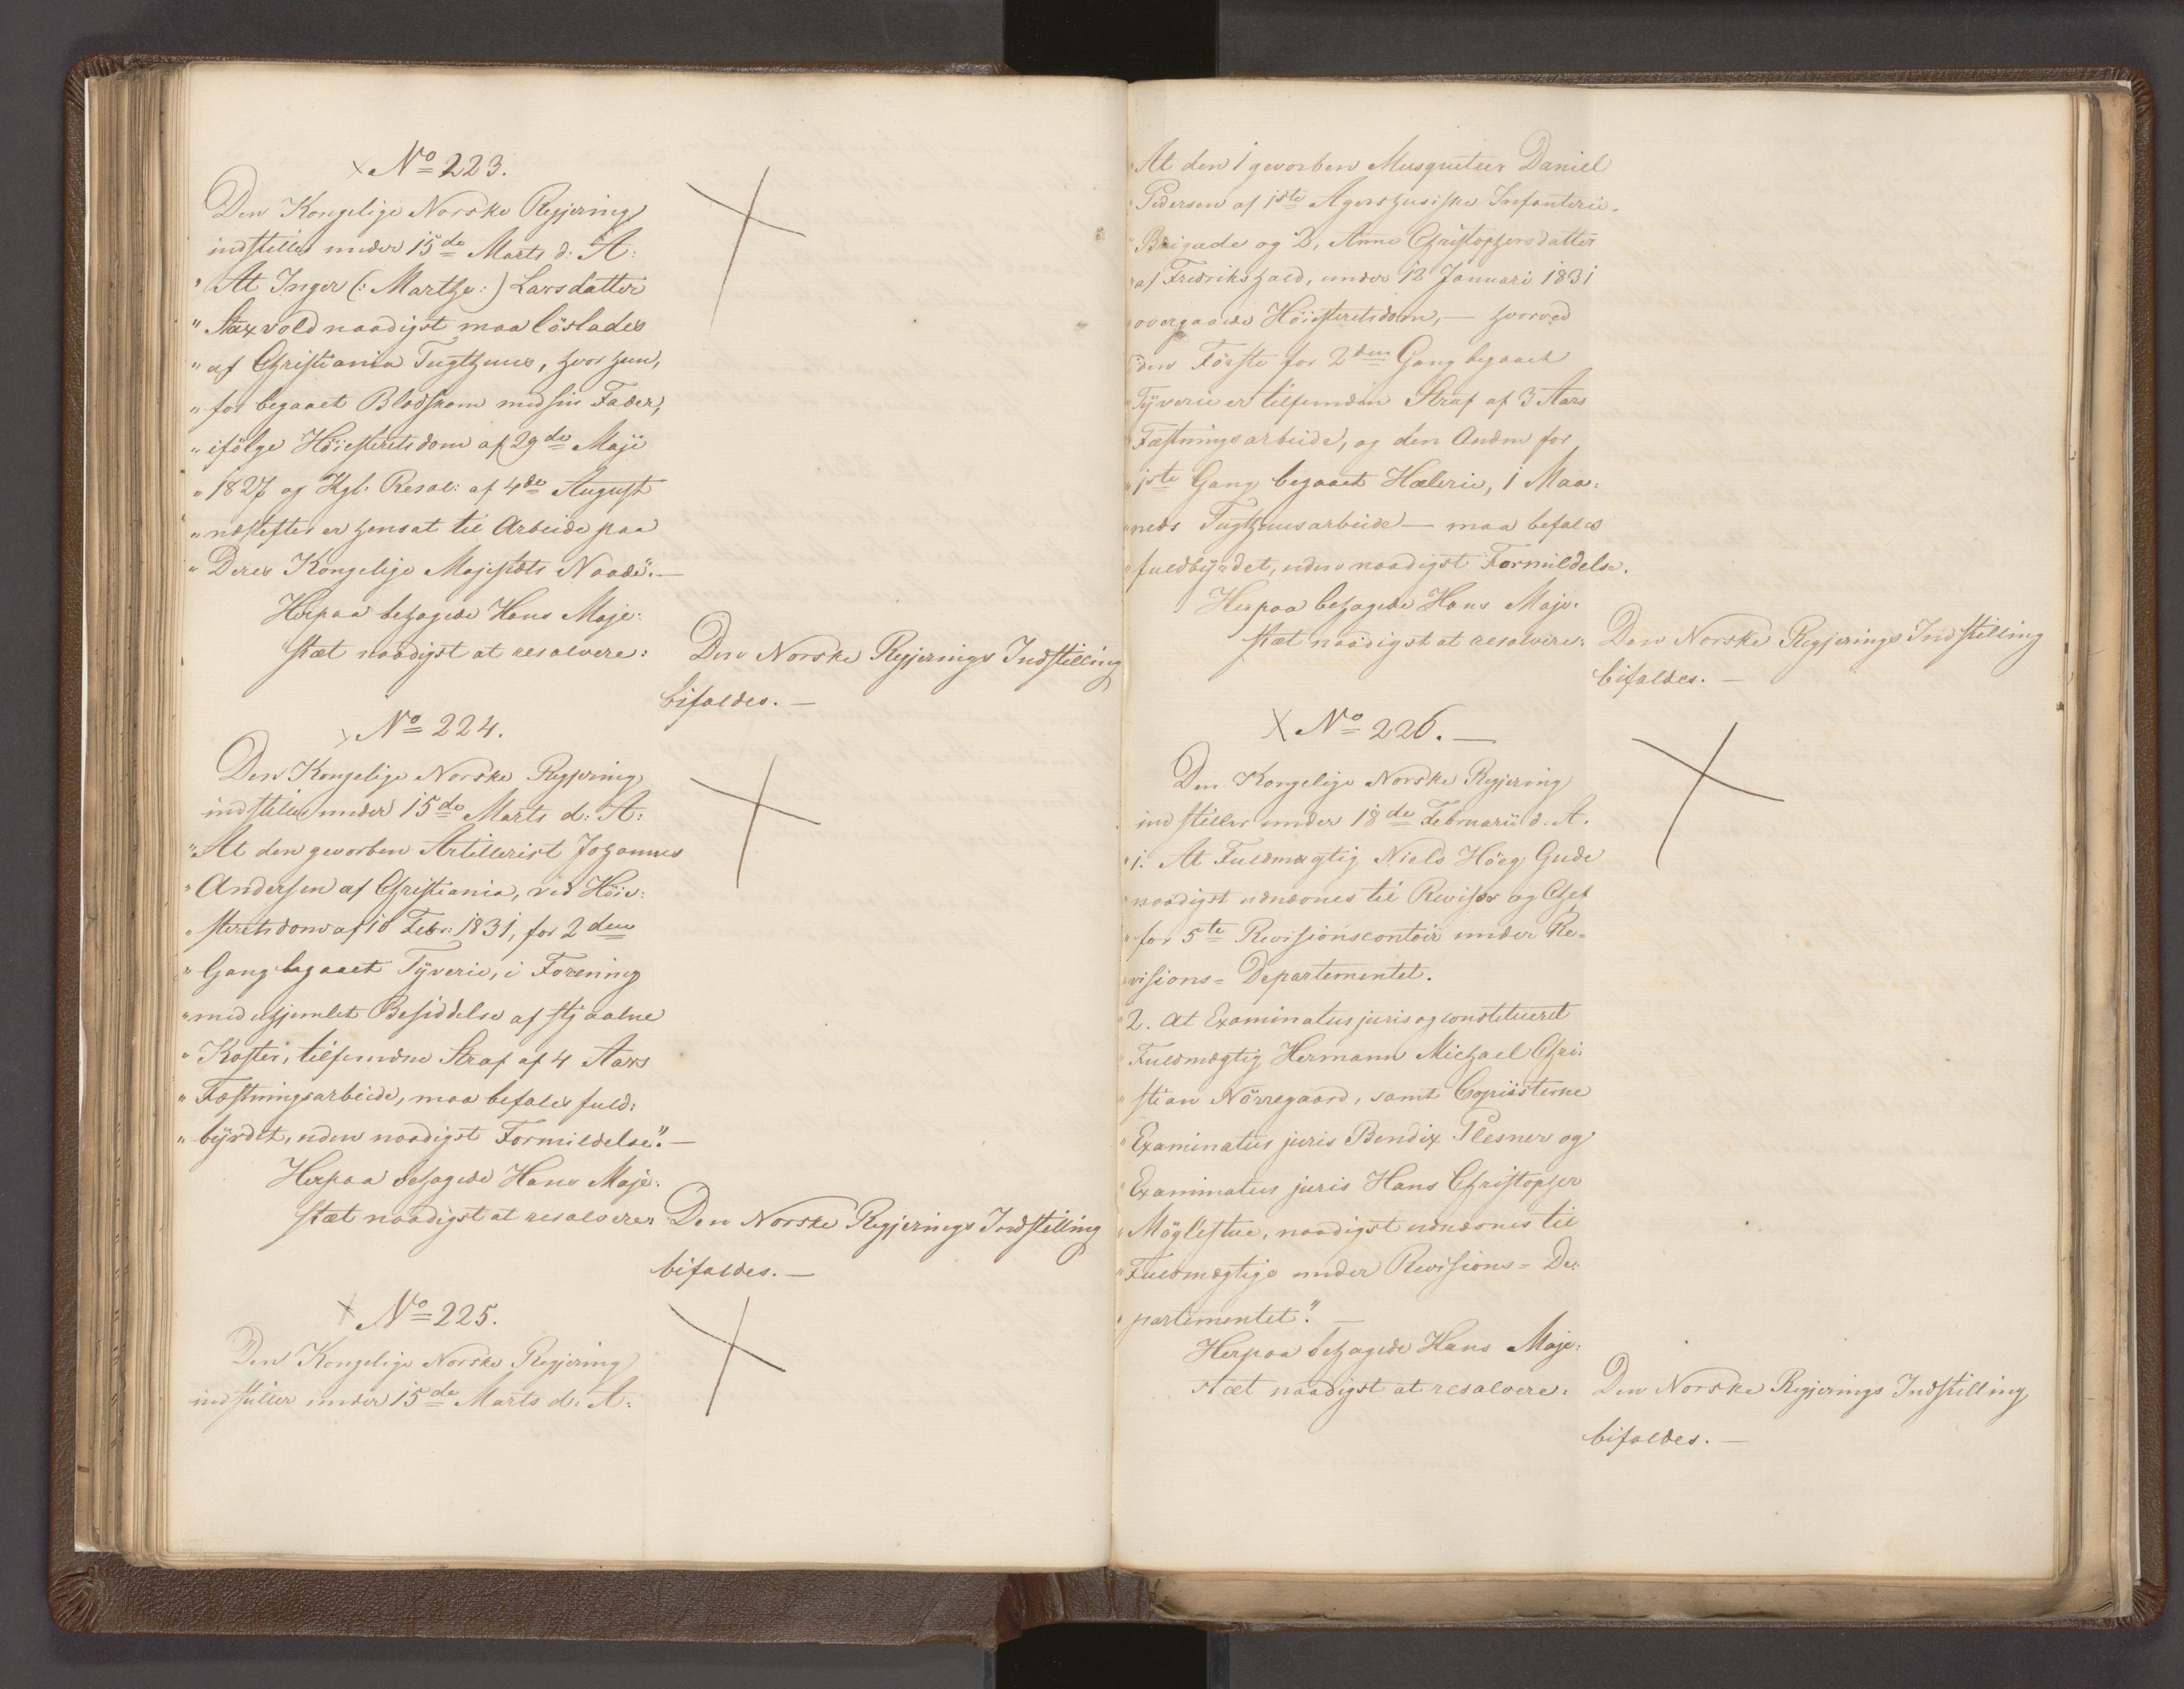 No 223.
Den Kongelige Norske Regjering
indstiller under 15de Marts d: A:
"At Inger (: Marthe :) Larsdatter
"Staxvold naadigst maa löslades
"af Christiania Tugthuus, hvor hun,
"for begaaet Blodskam med sin Fader,
"ifölge Höiesteretsdom af 29de Maji
"1827 og Kgl. Resol: af 4de August
"næstefter er hensat til Arbeide paa
"Deres Kongelige Majestæts Naade".—
Herpaa behagede Hans Maje:
stæt naadigst at resolvere:
Den Norske Regjerings Indstilling
bifaldes.—
No 224.
Den Kongelige Norske Regjering
indstiller under 15de Marts d: A:
"At den gevorben Artillerist Johannes
"Andersen af Christiania, ved Höie:
"steretsdom af 10 Febr: 1831, for 2den
"Gang begaaet Tÿverie, i Forening
"med uhjemlet Besiddelse af stjaalne
"Koster, tilfunden Straf af 4 Aars
"Fæstningsarbeide, maa befales fuld:
"bÿrdet, uden naadigst Formildelse".—
Herpaa behagede Hans Maje:
stæt naadigst at resolvere:
Den Norske Regjerings Indstilling
bifaldes.—
No 225.
Den Kongelige Norske Regjering
indstiller under 15de Marts d: A:
"At den i gevorben Musqueteer Daniel
"Pedersen af 1ste Agershusiske Infanterie-
"Brigade og D, Anne Christophersdatter
"af Fredrikshald, under 12 Januari 1831
"overgaaede Höiesteretsdom,— hvorved
"den Förste for 2den Gang begaaet
"Tÿverie er tilfunden Straf af 3 Aars
"Fæstningsarbeide, og den Anden for
"1ste Gang begaaet Hælerie, 1 Maa:
"neds Tugthuusarbeide— maa befales
"fuldbÿrdet, uden naadigst Formildelse.
Herpaa behagede Hans Maje:
stæt naadigst at resolvere:
Den Norske Regjerings Indstilling
bifaldes.—
No 226.—
Den Kongelige Norske Regjering
indstiller under 18de Februarii d: A.
"1. At Fuldmægtig Niels Höeg Gude
"naadigst udnævnes til Revisor og Chef
"for 5te Revisionscontoir under Re-
"visions-Departementet.
"2. at Examinatus juris og constitueret
"Fuldmægtig Hermann Michael Chri:
"stian Nörregaard, samt Copiisterne
"Examinatus juris Bendix Plesner og
"Examinatus juris Hans Christopher
"Möglestue, naadigst udnævnes til
"Fuldmægtige under Revisions-De:
"partementet".—
Herpaa behagede Hans Maje:
stæt naadigst at resolvere:
Den Norske Regjerings Indstilling
bifaldes.—